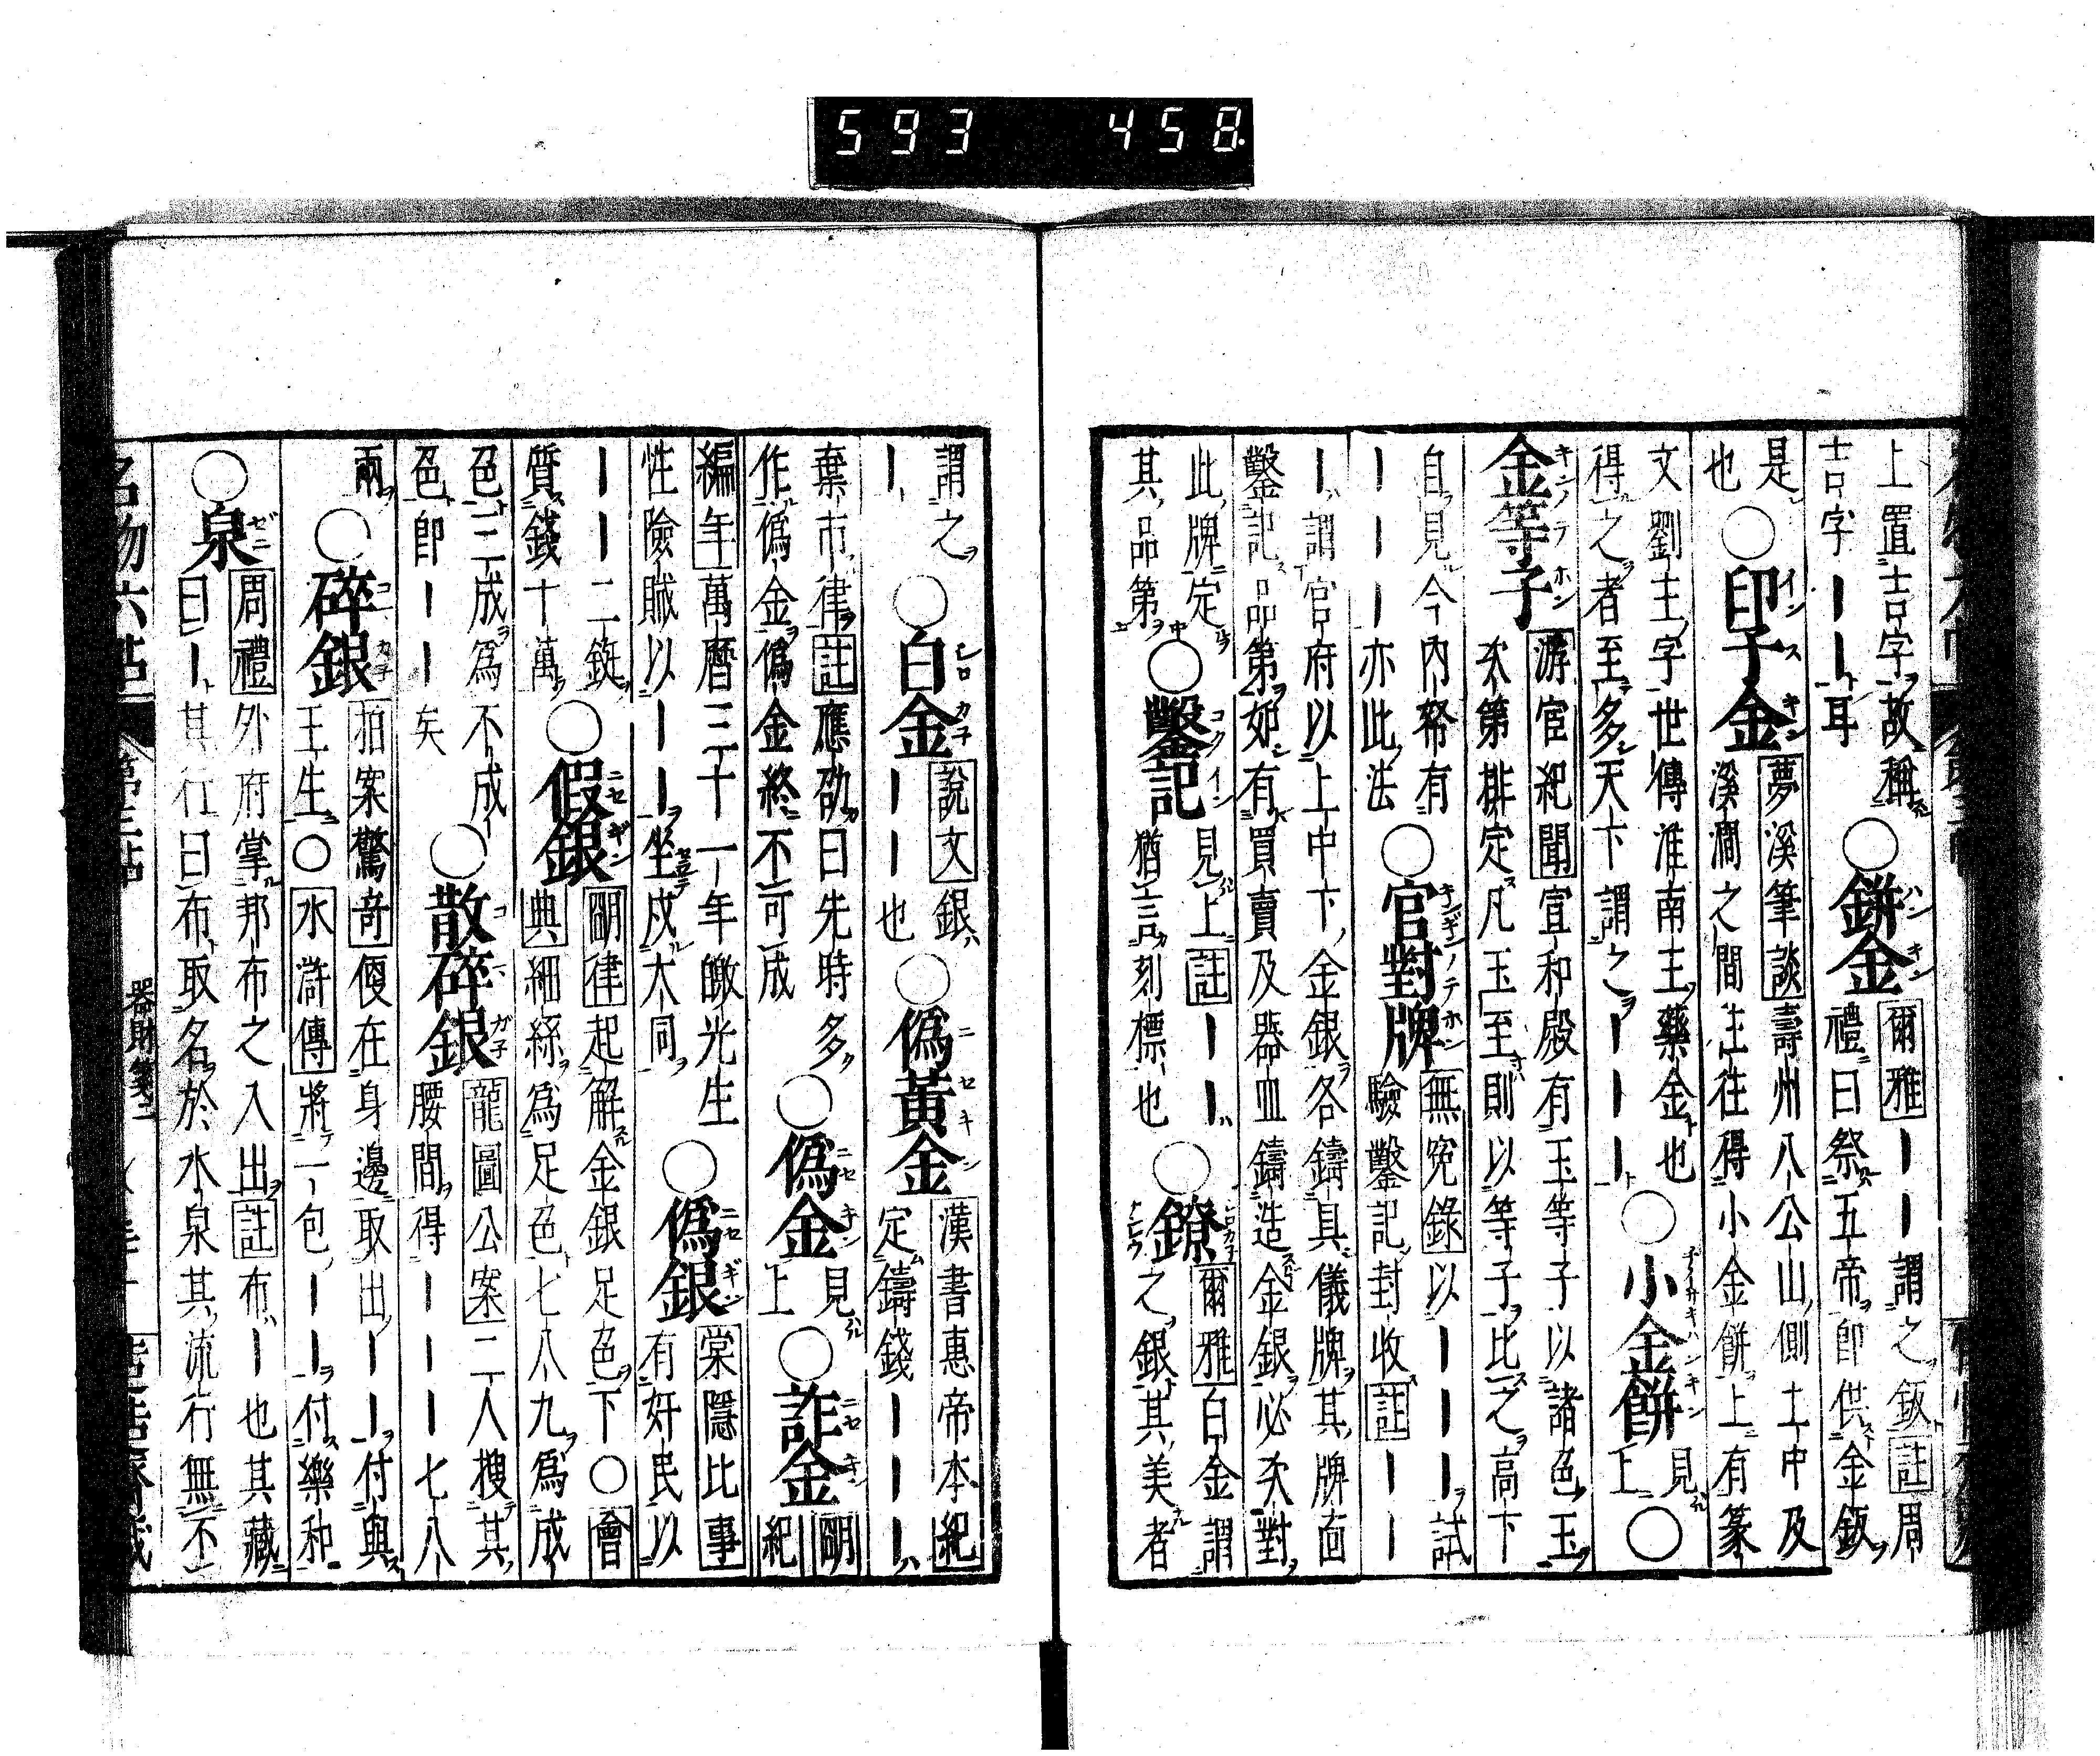 593 458
上置吉字故稱
吉字｜｜耳
○鉼金
爾雅｜｜謂之鈑註周
禮曰祭五帝即供金鈑
是
也
○印子金
夢溪筆談壽州八公山側土中及
溪澗之間往往得小金餠上有篆
文劉主字世傳淮南王藥金也
得之者至多天下謂之｜｜｜
○小金餠
見
上
○
金等子
游宦紀聞宣和殿有玉等子以諸色玉
次第排定凡玉至則以等子比之高下
自見今內帑有
｜｜｜亦此法
○官對牌
無冤錄以｜｜｜試
驗鑿記封收註｜｜
｜謂官府以上中下金銀各鑄具儀牌其牌面
鑿記品第如有買賣及器皿鑄造金銀必次對
此牌定
其品第
○鑿記
見上註｜｜
猶言刻標也
○鐐
爾雅白金謂
之銀其美者
謂之
｜
○白金
說文銀
｜｜也
○偽黃金
漢書惠帝本紀
定鑄錢｜｜｜
棄市律註應劭曰先時多
作偽金偽金終不可成
○偽金
見
上
○詐金
明
紀
編年萬曆三十一年皦光生
性險賊以｜｜坐戍大同
○偽銀
棠隱比事
有奸民以
｜｜二鋌
質錢十萬
○假銀
明律起解金銀足色下○會
典細絲為足色七八九為成
色三成為不成
色即｜｜矣
○散碎銀
龍圖公案二人搜其
腰間得｜｜｜七八
兩
○碎銀
拍案驚奇便在身邊取出｜｜付與
王生○水滸傳將一包｜｜付樂和
○泉
周禮外府掌邦布之入出註布｜也其藏
曰｜其行曰布取名於水泉其流行無不
名物六帖
第三帖
器財箋二